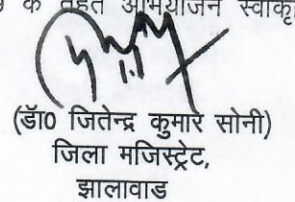 के तहत अभियोजन
(डॅा0 जितेन्द्र कुमार सोनी)
जिला मजिस्ट्रेट,
झालावाड